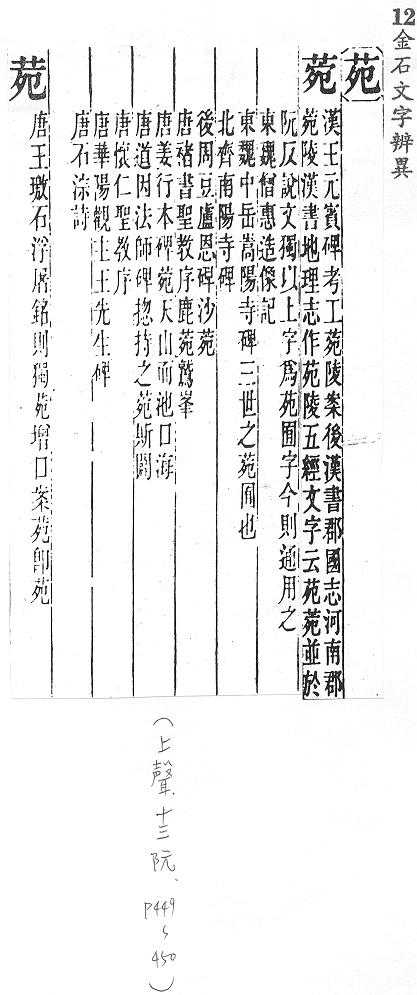 12金石文字辨異
苑
菀
漢王元賓碑考工菀陵案後漢書郡國志河南郡
菀陵漢書地理志作苑陵五經文字云苑菀並於
阮反說文獨以上字爲苑囿字今則通用之
東魏僧惠造像記
東魏中岳嵩陽寺碑三世之菀囿也
北齊南陽寺碑
後周豆盧恩碑沙菀
唐褚書聖教序鹿菀鷲峯
唐姜行本碑菀天山而池口海
唐道因法師碑揔持之菀斯闢
唐懷仁聖教序
唐華陽觀主王先生碑
唐石淙詩
菀
唐王璥石浮屠銘則獨菀增口案菀卽苑
(上聲、十三阮、P449~450)